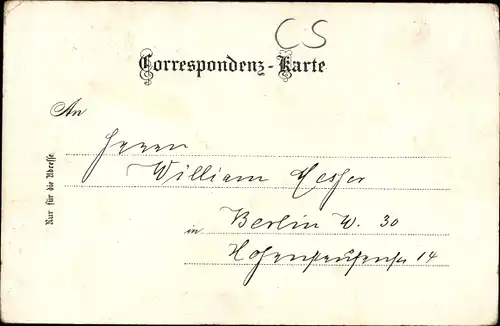 CS
Correspondenz-Karte
An
Herrn
William Hesser
in Berlin W. 30
Hohenstaufenstr 14
Nur für die Adresse.